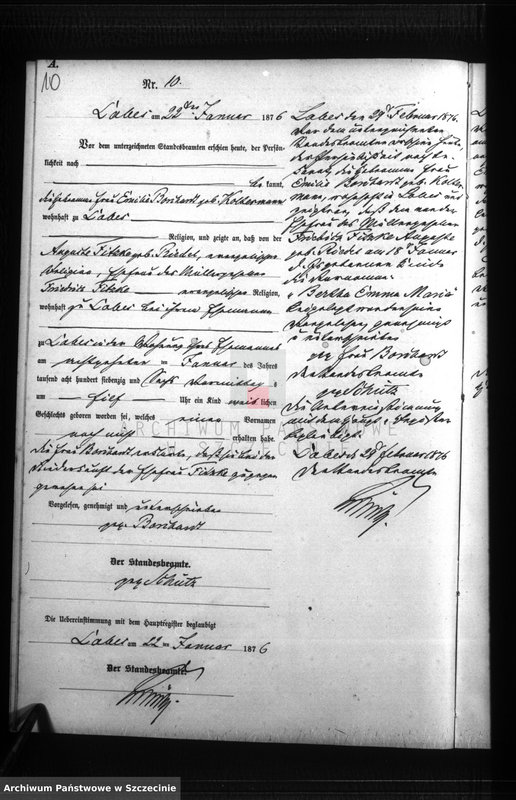 A.
10
Nr. 10.
Labes am 22ten Januar 1876
Vor dem unterzeichneten Standesbeamten erschien heute, der Persön-
lichkeit nach
be kannt,
die Hebamme Frau Emilie Borchardt geb. Koltermann
wohnhaft zu Labes
Religion, und zeigte an, daß von der
Auguste Fitzke geb. Riedel, evangelischer
Religion, Ehefrau des Müllergesellen
Friedrich Fitzke
evangelischer Religion,
wohnhaft zu Labes bei ihrem Ehemann
zu Labes in der Wohnung ihres Ehemannes
am achtzehnten ten Januar des Jahres
tausend acht hundert siebenzig und sechs Vormittags
um elf Uhr ein Kind weib lichen
Geschlechts geboren worden sei, welches einen Vornamen
noch nicht erhalten habe.
Die Frau Borchardt erklärte, daß sie bei der
Niederkunft der Ehefrau Fitzke zugegen
gewesen sei
Vorgelesen, genehmigt und unterschrieben
gez. Borchardt
Der Standesbeamte.
gez. Schütz
Die Uebereinstimmung mit dem Hauptregister beglaubigt
Labes am 22 ten Januar 1876
Der Standesbeamte.
Labes den 29t Februar 1876.
Vor dem unterzeichneten
Standesbeamten erschien heute
der Persönlichkeit nach be-
kannt, die Hebamme Frau
Emilie Borchardt geb. Kolter-
mann, wohnhaft in Labes und
zeigte an, daß dem von der
Ehefrau des Müllergesellen
Friedrich Fitzke Auguste
geb. Riedel am 18t Januar
d. Js geborenen Kinde
die Vornamen
"Bertha Emma Marie
beigelegt worden seien
Vorgelesen, genehmigt
u. unterschrieben
gez. Frau Borchardt
Der Standesbeamte
gez. Schütz
Die Uebereinstimmung
mit dem Haupt-Register
beglaubigt.
Labes d. 29 Februar 1876
Der Standesbeamte
ARCHIWUM PAŃSTWOWE
W SZCZECINIE
Archiwum Państwowe w Szczecinie